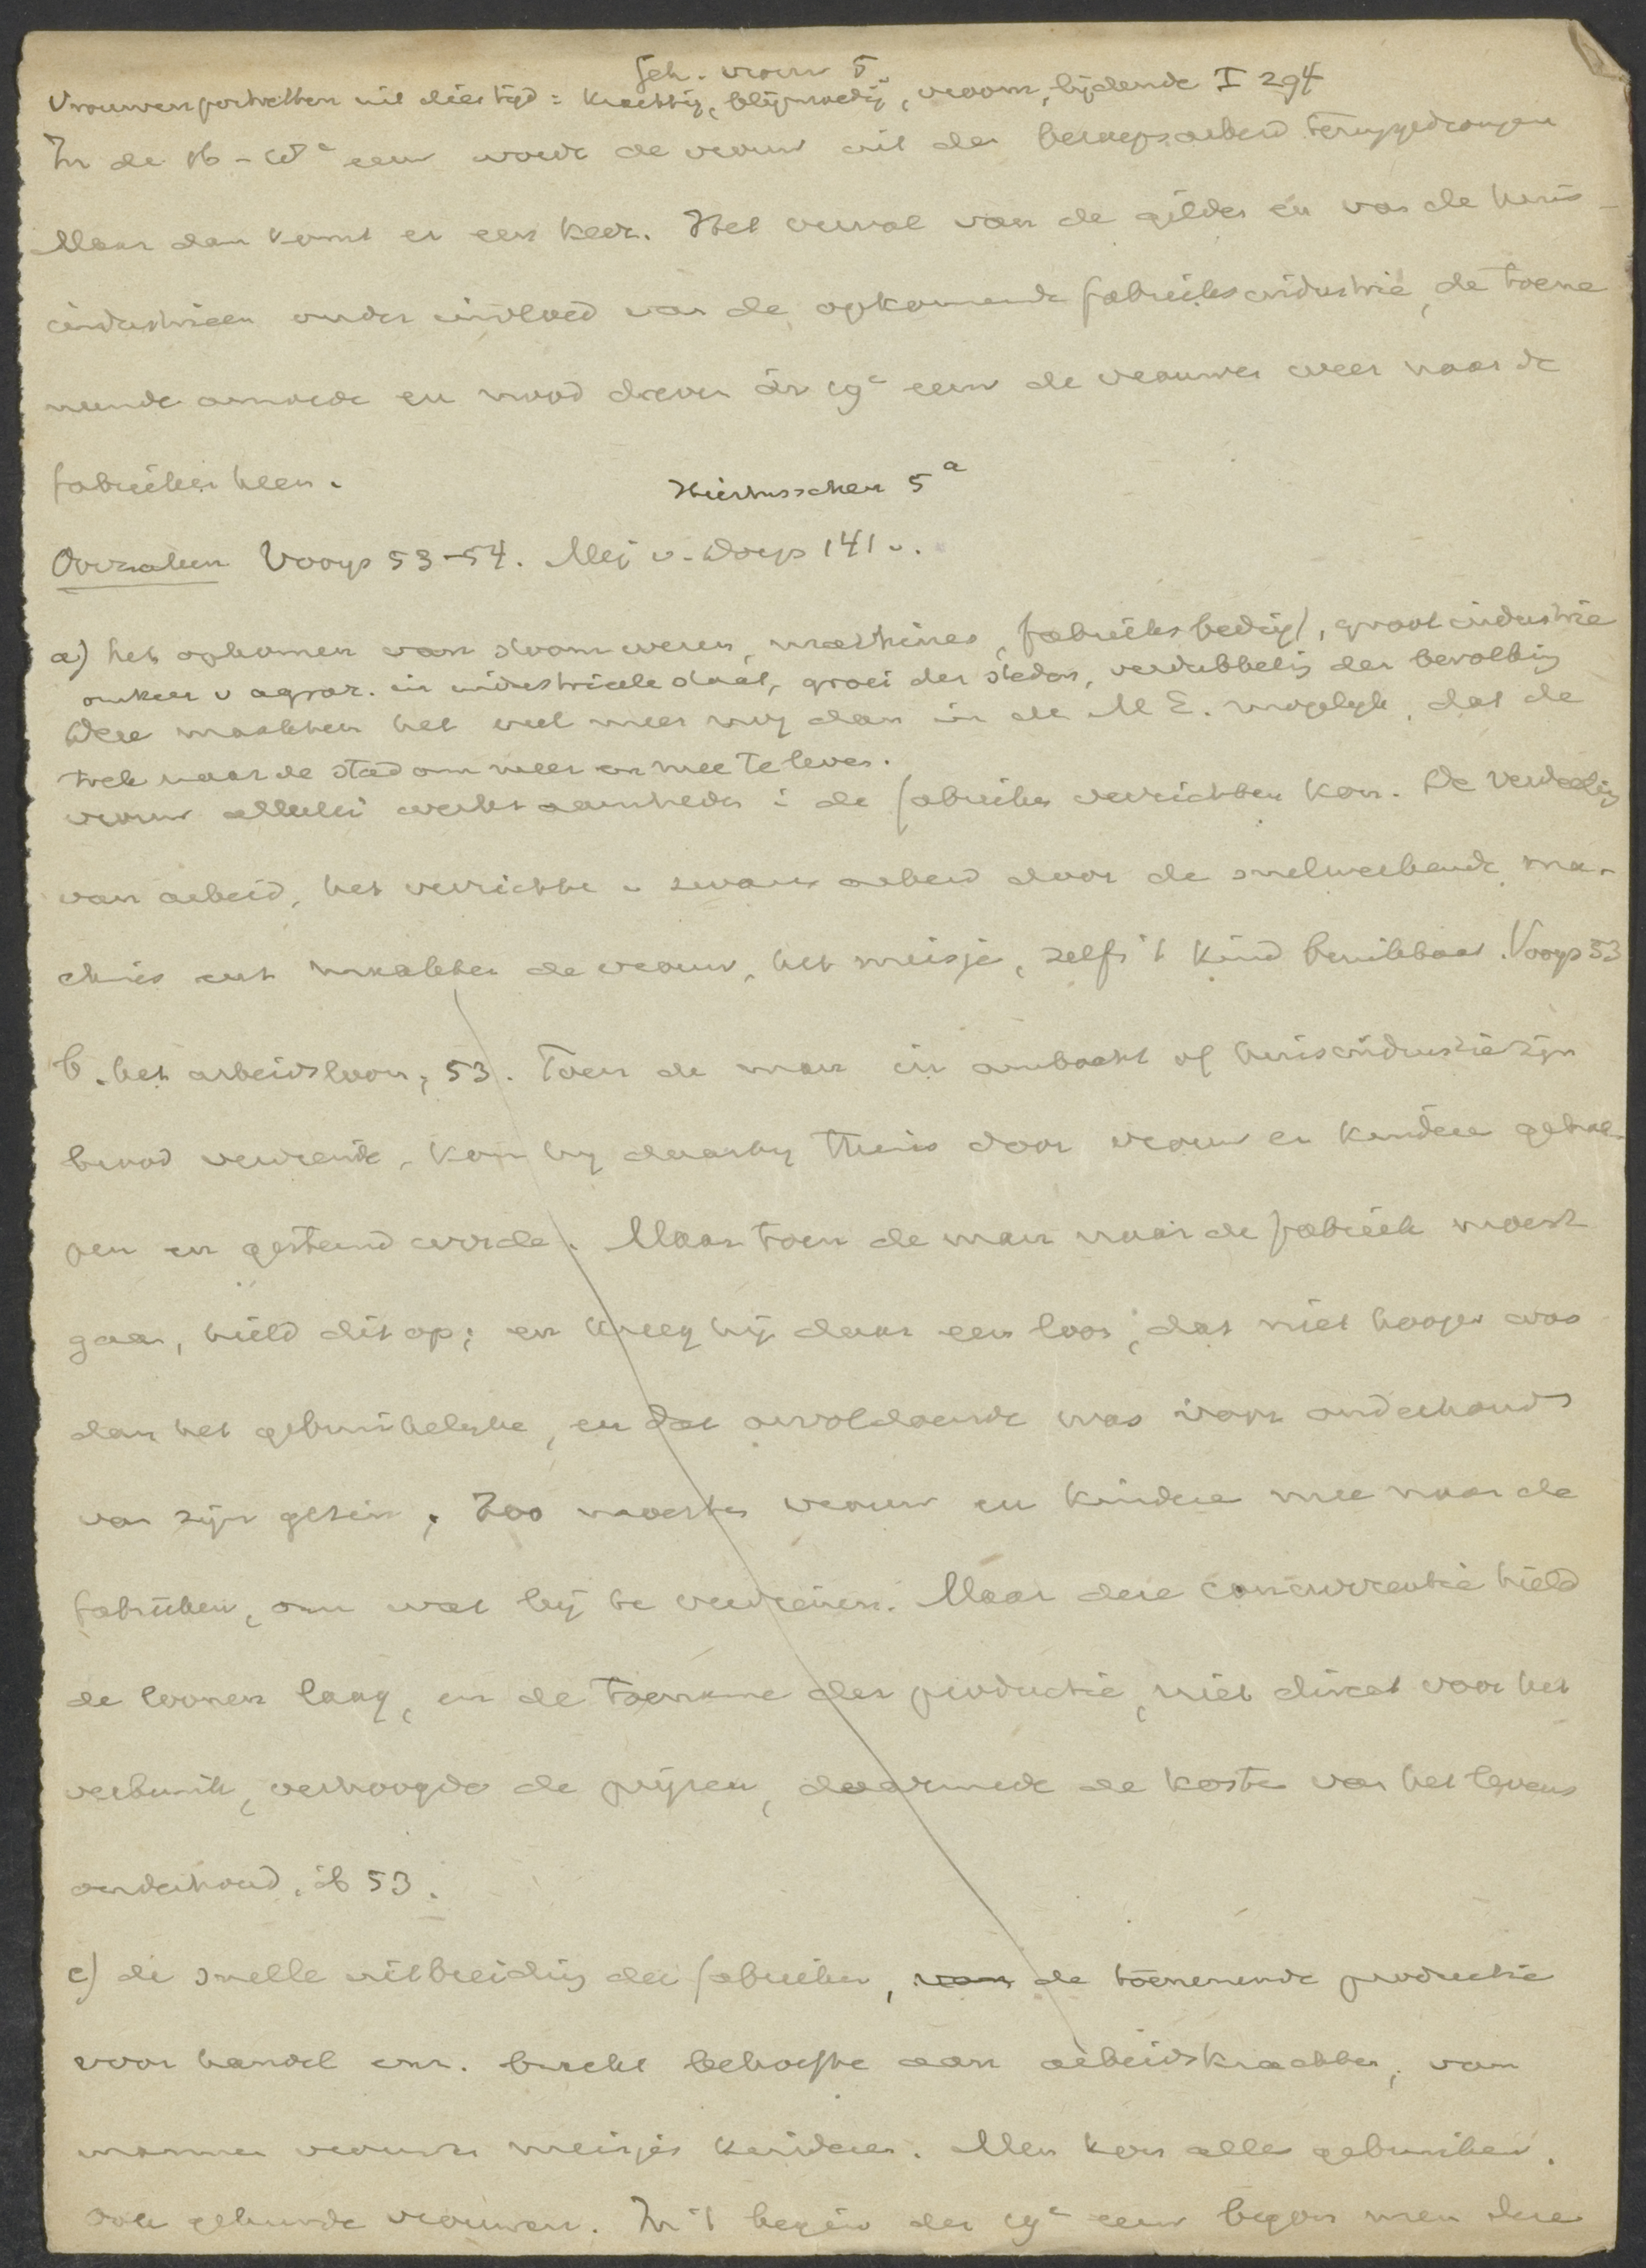 Geh. vrouw 5.
Vrouwenportretten uit dies tijd: krachtig, blijmoedig, vroom, lijdende I 294
In de 16-18e eeuw word de vrouw uit den beroepsarbeid teruggedrongen
Maar dan komt er een keer. Het verval van de gilden en van de huis-
industrieen onder invloed van de opkomende fabrieksindustrie, de toene
mende armoede en nood dreven in 19e eeuw de vrouwen weer naar de
fabrieken heen.
Hiertusschen 5a
Oorzaken Vooys 53-54. Mej v. Dorp 141 v.
a) het opkomen van stoomwezen, machines, fabrieksbedrijf, grootindustrie
omkeer v agrar. in industrieele staat, groei der steden, verdubbeling der bevolking
trek naar de stad om meer en mee te leven.
Deze maakten het veel meer nog dan in de M E. mogelijk, dat de
vrouw allerlei werkzaamheden i de fabrieken verrichten kon. De verdeeling
van arbeid, het verrichte v zwaren arbeid door de snelwerkende ma-
chies enz maakten de vrouw, het meisje, zelfs 't kind bruikbaar. Vooys 53
b. het arbeidsloon, 53. Toen de man in ambacht of huisindustrie zijn
brood verdiende, kon hij daarbij thuis door vrouw en kindere gehol-
pen en gesteund worde. Maar toen de man naar de fabriek moest
gaan, hield dit op; en kreeg hij daar een loon, dat niet hooger was
dan het gebruikelijke, en dat onvoldoende was voor onderhoud
van zijn gezin. Zoo moesten vrouw en kindere mee naar de
fabrieken, om wat bij te verdienen. Maar deze concurrentie hield
de loonen laag, en de toename der productie, niet direct voor het
verbruik, verhoogde de prijzen, daarmede de koste van het levens
onderhoud. ib 53.
c) de snelle uitbreiding der fabrieken, van de toenemende productie
voor handel enz. bracht behoefte aan arbeidskrachten, van
mannen vrouwen meisjes kinderen. Men kon alle gebruiken.
ook gehuwde vrouwen. In 't begin der 19e eeuw begon men deze